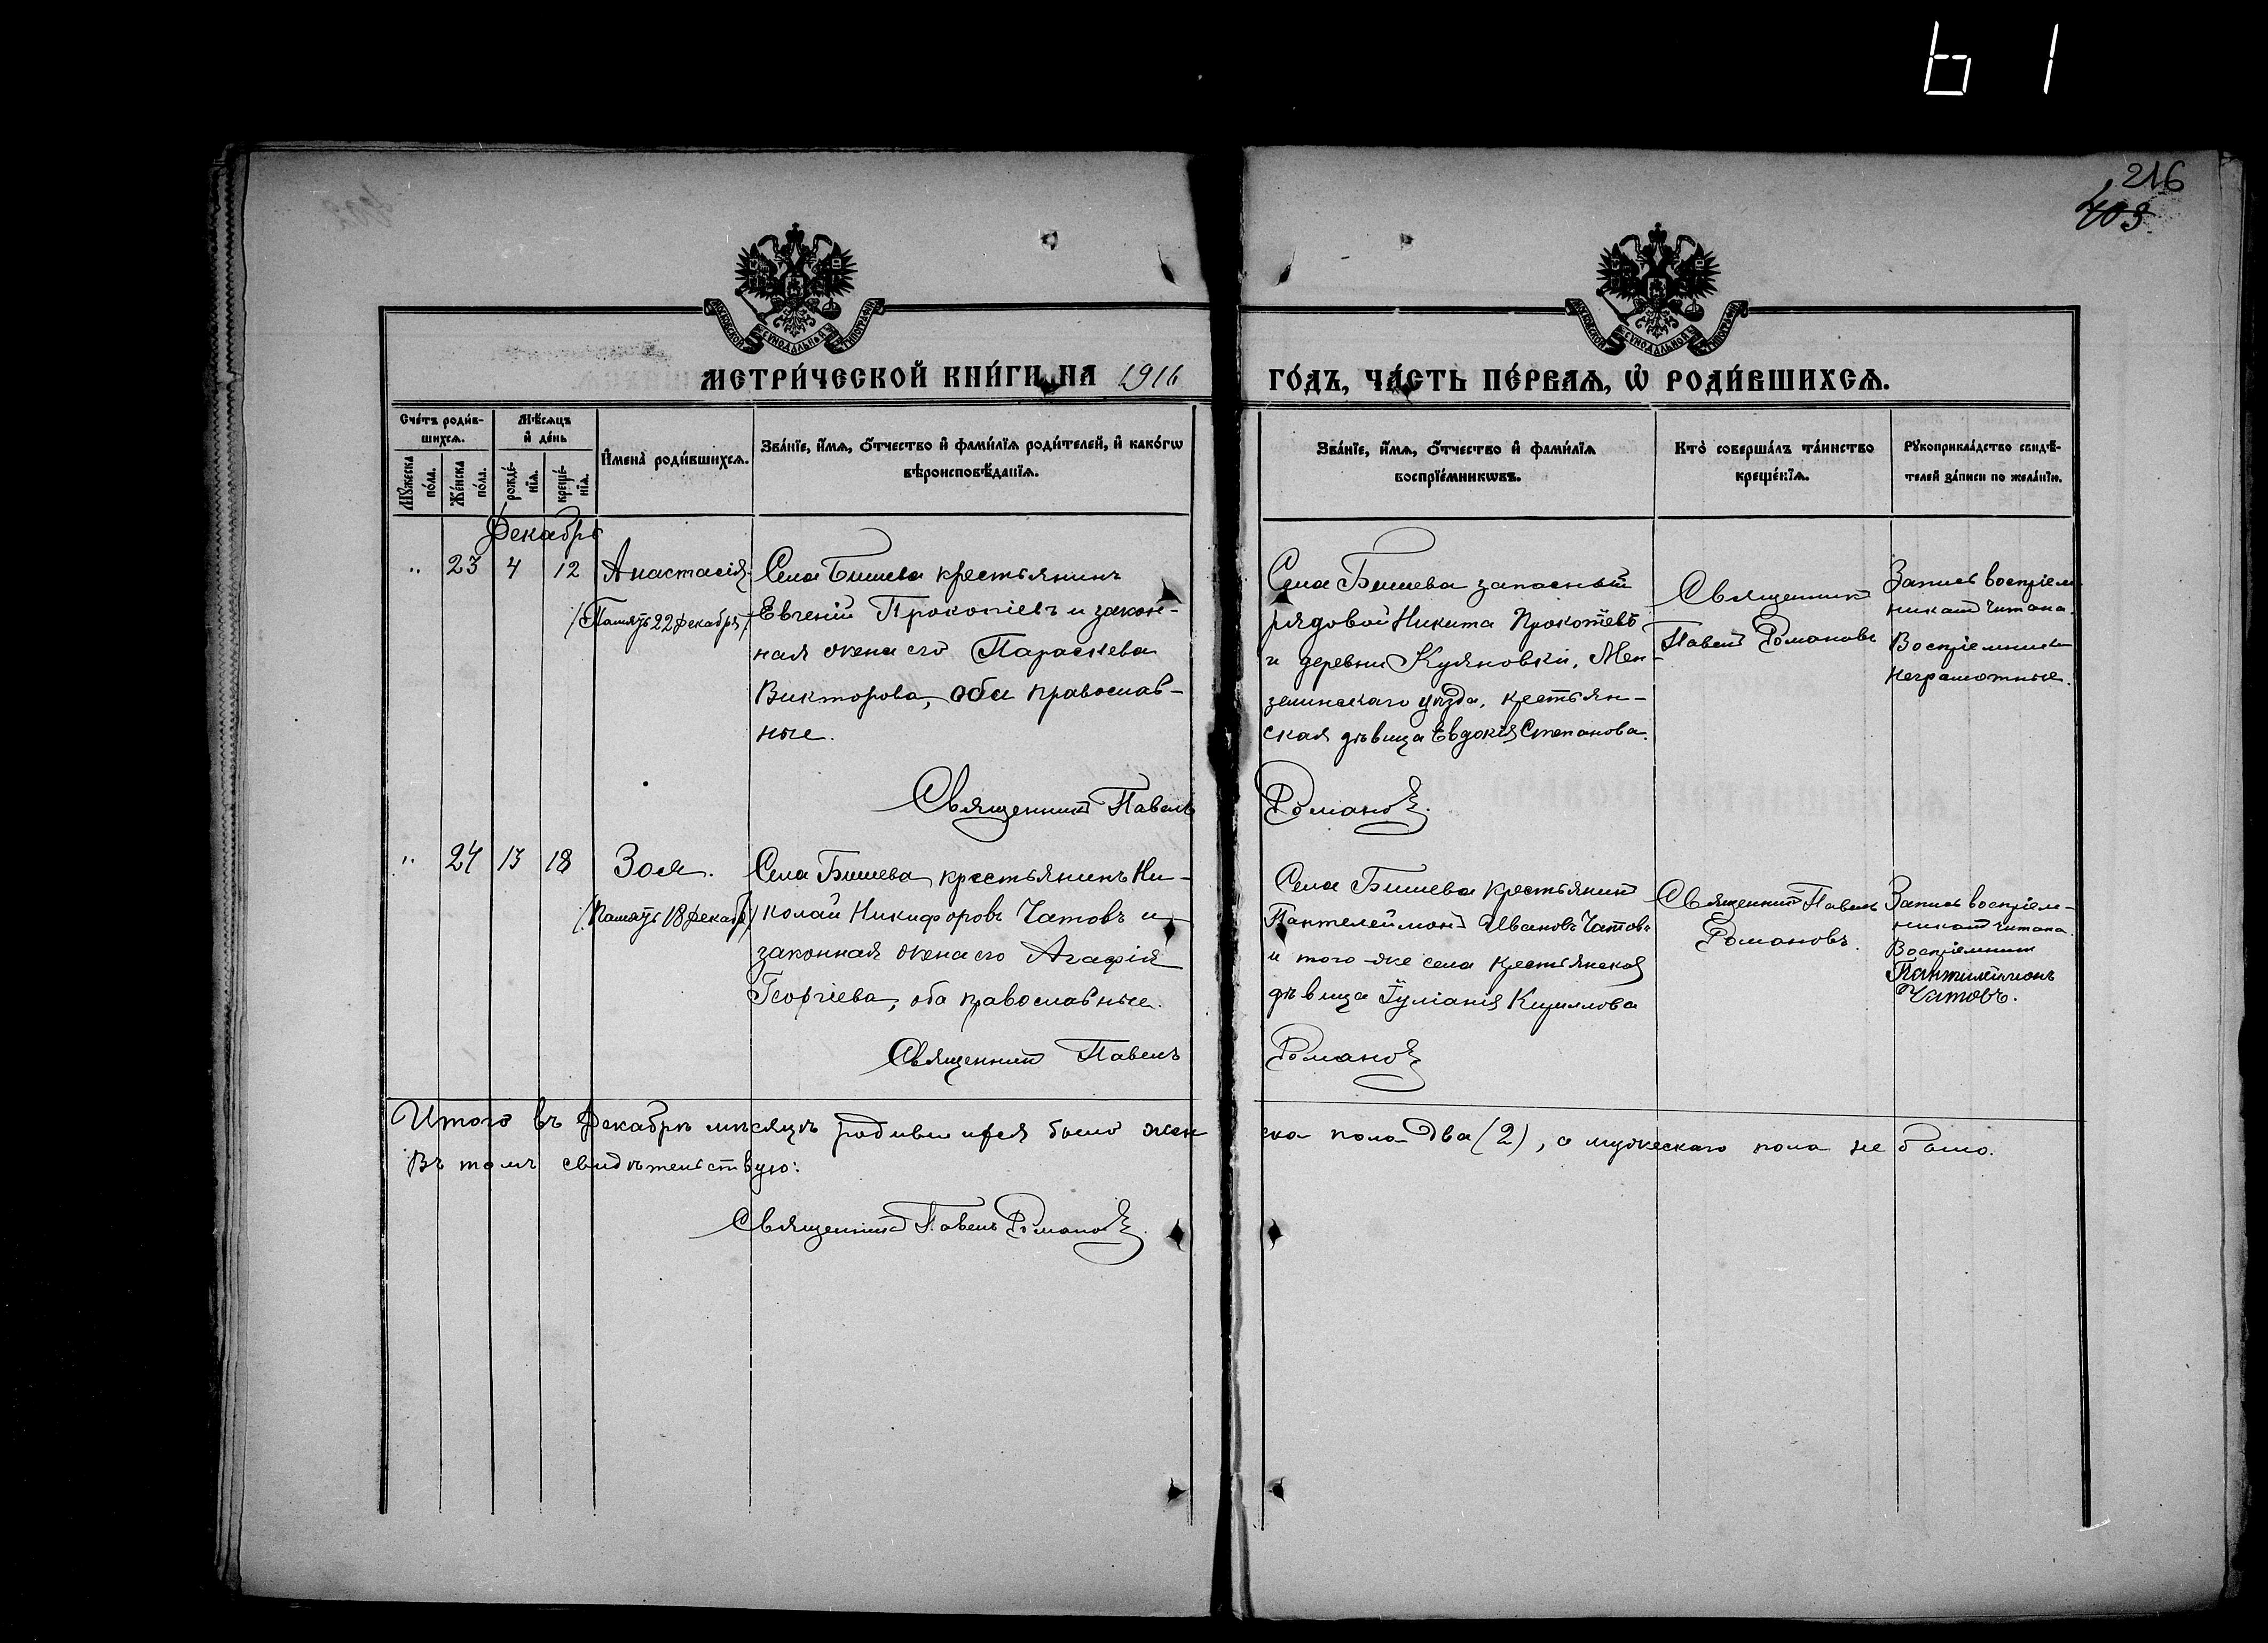 61
216
403
МОСКОВСКОЙ СѴНОДАЛЬНОЙ ТИПОГРАФІИ
МОСКОВСКОЙ СѴНОДАЛЬНОЙ ТИПОГРАФІИ
МЕТРИ́ЧЕСКОЙ КНИ́ГИ НА 1916
ГО́ДЪ, ЧА́СТЬ ПЕ́РВАѦ, Ѡ҆ РОДИ́ВШИХСѦ.
Сче́тъ роди́в-
шихсѧ.
Мꙋ́жеска по́ла.
Же́нска по́ла.
Мѣ́сѧцъ
и҆ де́нь
рожде́-
нїѧ.
креще́-
нїѧ.
И҆мена̀ роди́вшихсѧ.
Зва́нїе, и҆́мѧ, ѻ҆́тчество и҆ фами́лїѧ роди́телей, и҆ како́гѡ
вѣроисповѣ́данїѧ.
Зва́нїе, и҆́мѧ, ѻ҆́тчество и҆ фами́лїѧ
воспрїе́мникѡвъ.
Кто̀ соверша́лъ та́инство
креще́нїѧ.
Рꙋкоприкла́дство свидѣ́-
телей за́писи по жела́нїю.
Декабрь
" 23 4 12 Анастасія.
/Память 22 Декабря/
Села Бишева крестьянинъ
Евгеній Прокопіевъ и закон-
ная жена его Параскева
Викторова, оба православ-
ные.
Села Бишева запасный
рядовой Никита Прокопіевъ
и деревни Куяновки, Мен-
зелинскаго уѣзда, крестьян-
ская дѣвица Евдокія Степанова.
Священникъ
Павелъ Романовъ
Запись воспріем-
никамъ читана.
Воспріемники
неграмотные.
Священникъ Павелъ
Романовъ.
" 24 13 18 Зоя.
/Память 18 Декабр/
Села Бишева крестьянинъ Ни-
колай Никифоровъ Чатовъ и
законная жена его Агафія
Георгіева, оба православные.
Села Бишева крестьянинъ
Пантелеймонъ Ивановъ Чатовъ
и того-же села крестьянская
дѣвица Іуліанія Кириллова
Священникъ Павелъ
Романовъ.
Запись воспріем-
никамъ читана.
Воспріемникъ
Пантилеймонъ
Чатовъ.
Священникъ Павелъ
Романовъ
Итого въ Декабрѣ мѣсяцѣ родившихся было жен
ска пола два (2), а мужескаго пола не было.
Въ томъ свидѣтельствую:
Священникъ Павелъ Романовъ.